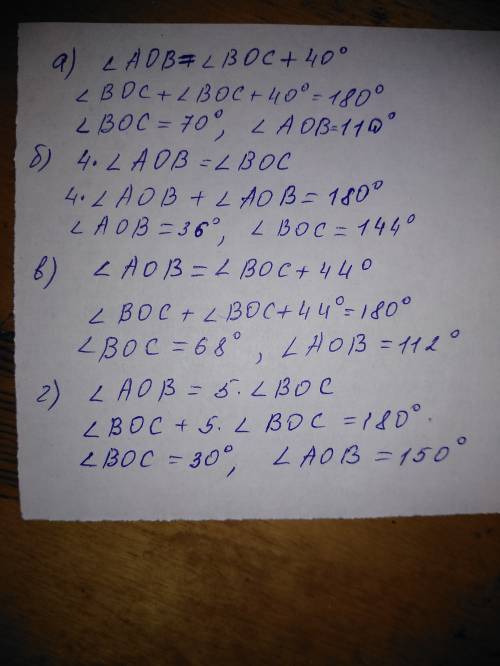 а) ∠AOB=∠BOC+40°
∠BOC+∠BOC+40°=180°
∠BOC=70°, ∠AOB=110°
б) 4·∠AOB=∠BOC
4·∠AOB+∠AOB=180°
∠AOB=36°, ∠BOC=144°
в) ∠AOB=∠BOC+44°
∠BOC+∠BOC+44°=180°
∠BOC=68°, ∠AOB=112°
г) ∠AOB=5·∠BOC
∠BOC+5·∠BOC=180°.
∠BOC=30°, ∠AOB=150°